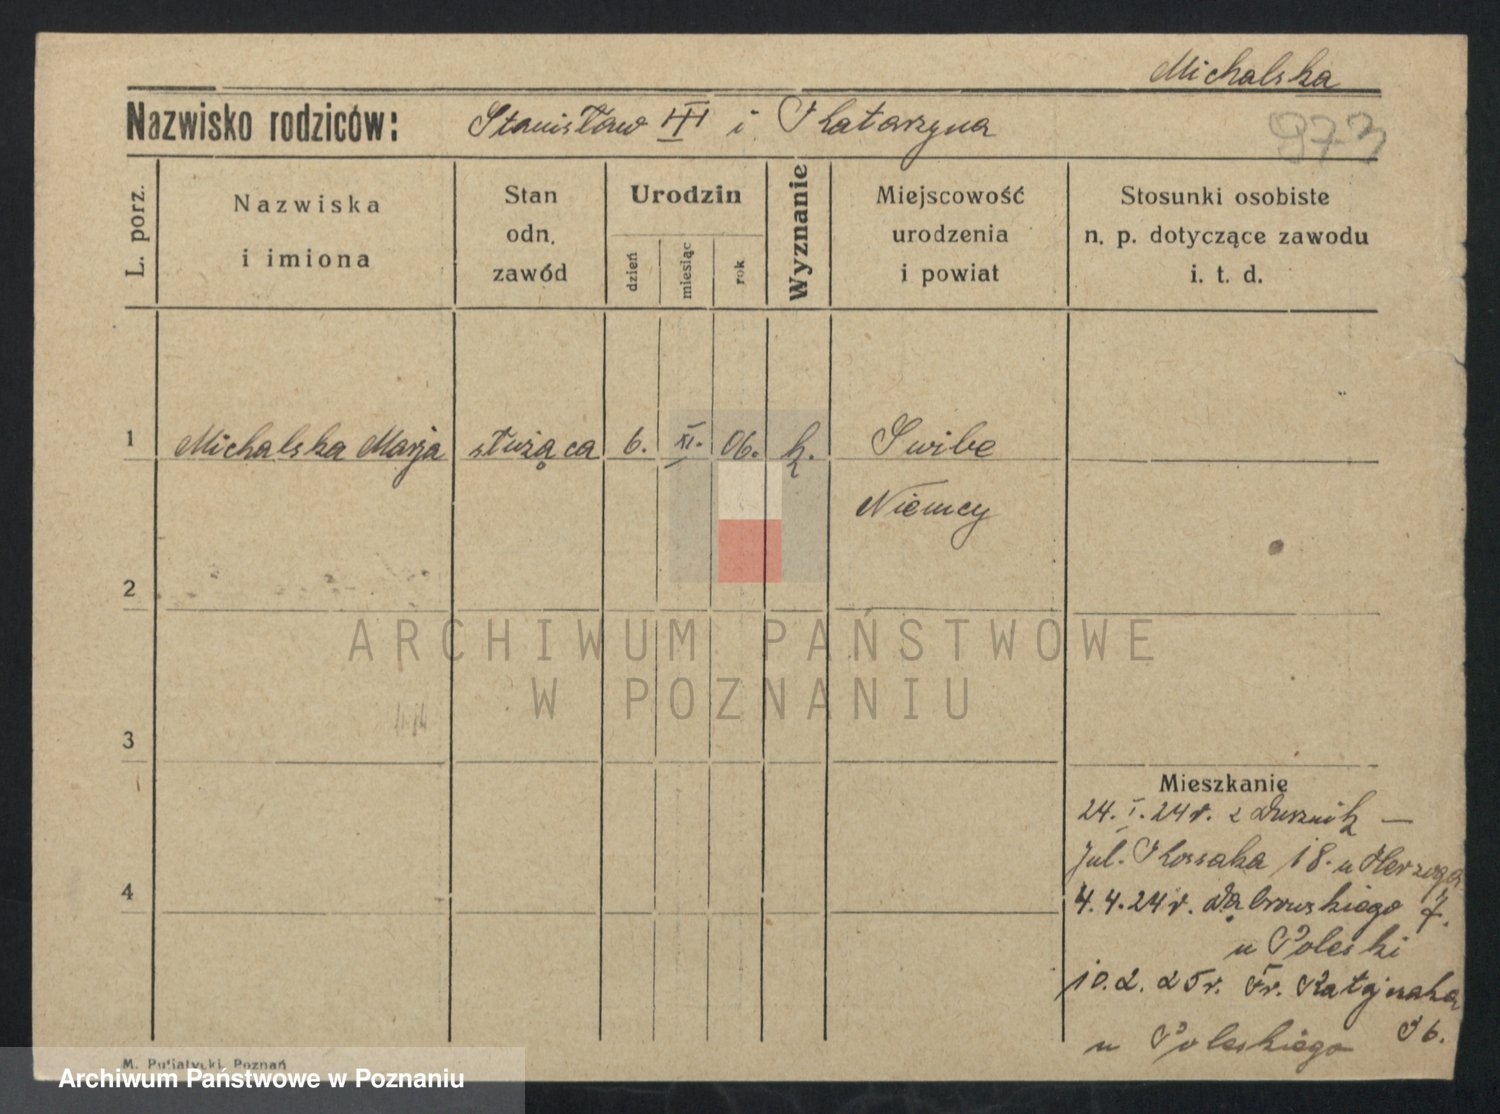 Michalska
Nazwisko rodziców: Stanisław III i Katarzyna
973
L. porz.
Nazwiska
i imiona
Stan
odn.
zawód
Urodzin
dzień
miesiąc
rok
Wyznanie
Miejscowość
urodzenia
i powiat
Stosunki osobiste
n. p. dotyczące zawodu
i. t. d.
1 Michalska Marja służąca 6. XI. 06. k. Swibe
Niemcy
2
ARCHIWUM PAŃSTWOWE
W POZNANIU
3
Mieszkanie
24. I. 24 r. z Dusznik —
Jul. Kossaka 18. u Herzoga
4
4. 4. 24 r. Dąbrowskiego 7.
u Poleski
10. 2. 25 r. Fr. Ratajczaka
36.
u Poleskiego
M. Putiatycki, Poznań
Archiwum Państwowe w Poznaniu